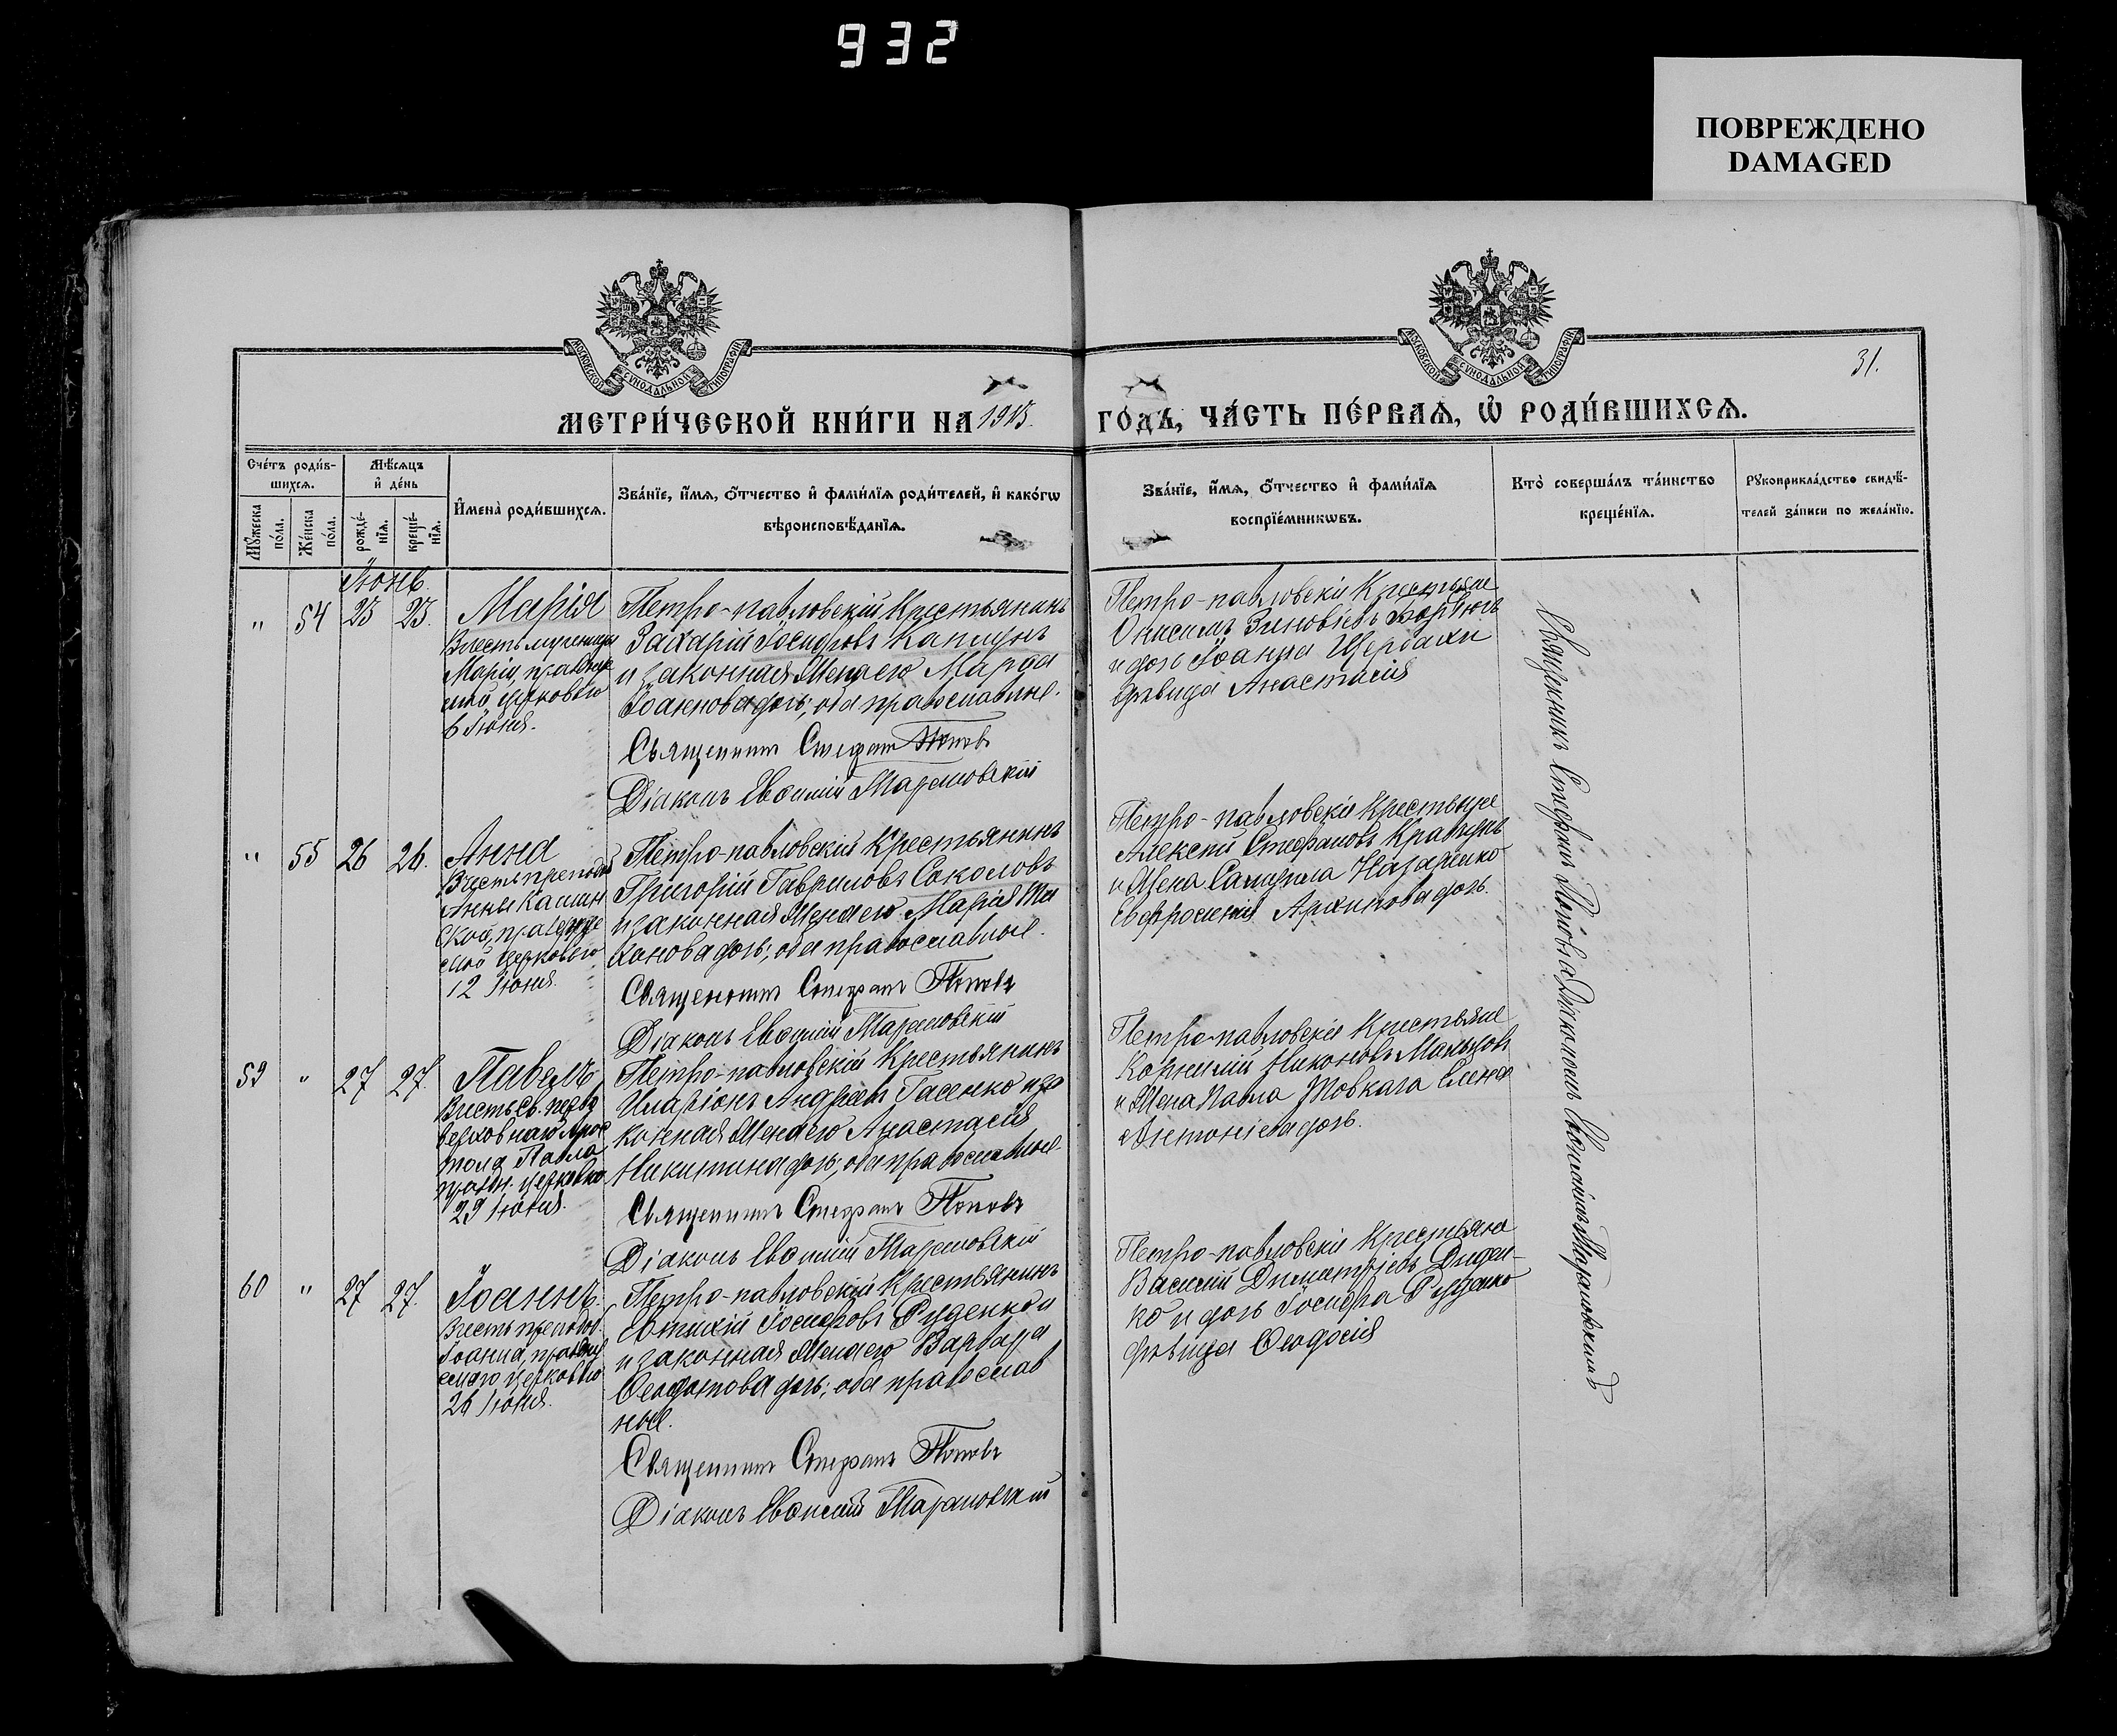 932
ПОВРЕЖДЕНО
DAMAGED
МОСКОВСКОЙ СѴНОДАЛЬНОЙ ТИПОГРАФІИ
МОСКОВСКОЙ СѴНОДАЛЬНОЙ ТИПОГРАФІИ
31.
МЕТРИ́ЧЕСКОЙ КНИ́ГИ НА 1915.
ГО́ДЪ, ЧА́СТЬ ПЕ́РВАѦ, Ѡ҆ РОДИ́ВШИХСѦ.
Сче́тъ роди́в-
шихсѧ.
Мꙋ́жеска
по́ла.
Же́нска
по́ла.
Мѣ́сѧцъ
и҆ де́нь
рожде́-
нїѧ.
креще́-
нїѧ.
И҆мена̀ роди́вшихсѧ.
Зва́нїе, и҆́мѧ, ѻ҆́тчество и҆ фами́лїѧ роди́телей, и҆ како́гѡ
вѣроисповѣ́данїѧ.
Зва́нїе, и҆́мѧ, ѻ҆́тчество и҆ фами́лїѧ
воспрїе́мникѡвъ.
Кто̀ соверша́лъ та́инство
креще́нїѧ.
Рꙋкоприкла́дство свидѣ́-
телей за́писи по жела́нїю.
Іюнь
" 54 25 25. Марія
Вчесть мученицы
Маріи, праздну
емой церковью
6 Іюня.
Петро-павловскій Крестьянинъ
Захарій Іосифовъ Капшукъ
и законная Жена его Марѳа
Іоаннова дочь; оба православные.
Священникъ Стефанъ Поповъ
Діаконъ Евѳимій Тарановскій
Петро-павловскіе Крестьяне
Онисимъ Зиновіевъ
и дочь Іоанна Щербахи
дѣвица Анастасія
Священникъ Стефанъ Поповъ съ Діакономъ Евѳиміемъ Тарановскимъ
" 55 26 26. Анна
Вчесть преподоб
Анны Кашин
ской, праздну
емой церковью
12 Іюня.
Петро-павловскій Крестьянинъ
Григорій Гавриловъ Соколовъ
и законная Жена его Марія Ти
хонова дочь; оба православные.
Священникъ Стефанъ Поповъ
Діаконъ Евѳимій Тарановскій
Петро-павловскіе Крестьяне
Алексій Стефановъ Кравцовъ
и Жена Самуила Назаренко
Евфросинія Архипова дочь.
59 " 27 27. Павелъ
Вчесть св. перво
верховнаго Апос
тола Павла
праздн. церковью
29 Іюня.
Петро-павловскій Крестьянинъ
Иларіонъ Андреевъ Гасенко и за
конная Жена его Анастасія
Никитина дочь; оба православные.
Священникъ Стефанъ Поповъ
Діаконъ Евѳимій Тарановскій
Петро-павловскіе Крестьяне
Корнилій Никоновъ Мальцовъ
и Жена Павла Жовкага Елена
Антоніева дочь.
60 " 27 27. Іоаннъ.
Вчесть преподоб.
Іоанна, праздну
емаго церковью
26 Іюня.
Петро-павловскій Крестьянинъ
Евтихій Іосифовъ Руденко и
и законная Жена его Варвара
Ѳеодотова дочь; оба православ
ные.
Священникъ Стефанъ Поповъ
Діаконъ Евѳимій Тарановскій
Петро-павловскіе Крестьяне
Василій Димитріевъ Диден-
ко и дочь Іосифа Руденко
дѣвица Ѳеодосія